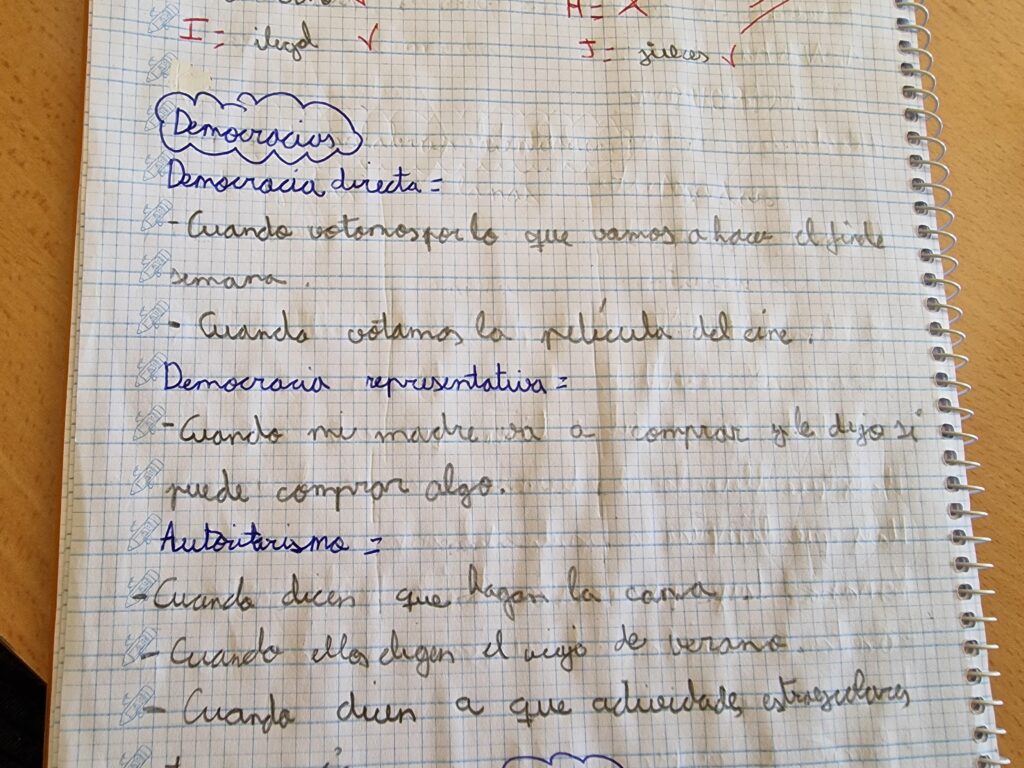 H= X
I= ilegal ✓ J= jueces ✓
Democracias
Democracia directa=
- Cuando votamos por lo que vamos a hacer el fin de
semana.
- Cuando votamos la película del cine.
Democracia representativa=
- Cuando mi madre va a comprar y le dijo si
puede comprar algo.
Autoritarismo =
- Cuando dicen que hagan la cama.
- Cuando ellos eligen el viaje de verano.
- Cuando dicen a que actividades extraescolares